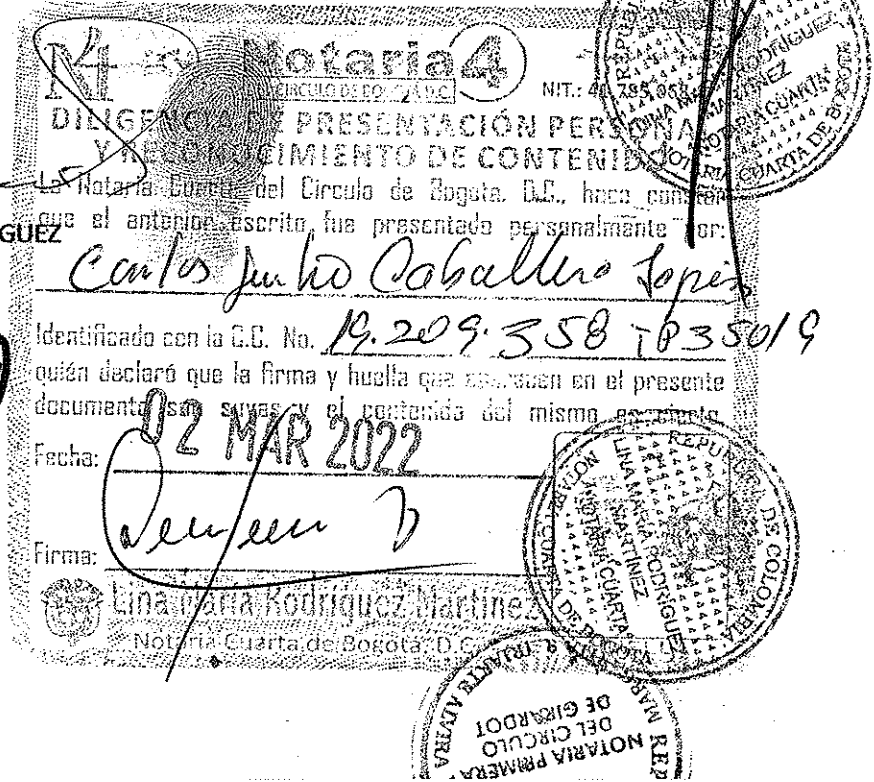 Notaria 4
CIRCULO DE BOGOTÁ D.C.
NIT.:
DILIGENCIA DE PRESENTACIÓN PERSONAL
Y RECONOCIMIENTO DE CONTENIDO
La Notaria Cuarta del Circulo de Bogota, D.C., hace constar
que el anterior escrito fue presentado personalmente por:
GUEZ
Carlos Julio Caballero
Identificado con la C.C. No. 19.209.358 TP 35019
quién declaró que la firma y huella que aparecen en el presente
documento son suyas y el contenido del mismo es cierto
Fecha: 02 MAR 2022
Firma:
Lina Maria Rodriguez Martinez
Notaria Cuarta de Bogotá, D.C.
LINA MARIA RODRIGUEZ
MARTINEZ
NOTARIA CUARTA
NOTARIA CUARTA DE BOGOTA
REPUBLICA DE COLOMBIA
LINA MARIA RODRIGUEZ
MARTINEZ
NOTARIA CUARTA
NOTARIA PRIMERA
DEL CIRCULO
DE GIRARDOT